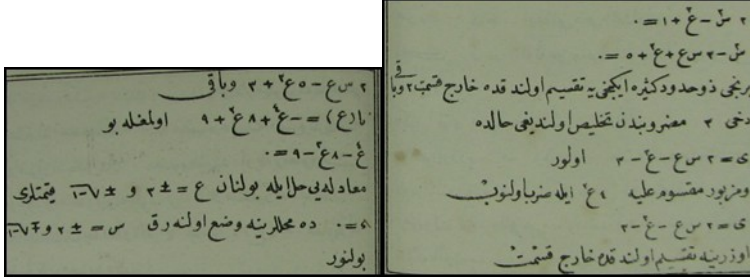 ٢ س٢ − ع٢ + ١ = ٠
س٢ − ٣ س ع + ع٢ + ٥ = ٠
برنجی ذوحدود کثیره ایکنجی یه تقسیم اولندقده خارج قسمت ٢ و باقی
دخی ٣ مضروبندن تخلیص اولندیغی حالده
ی = ٢ س ع − ع٢ − ٣ اولور
ومزبور مقسوم علیه ٤ع٢ ایله ضرب اولنوب
ی = ٢ س ع − ع٢ − ٣
اوزرینه تقسیم اولندقده خارج قسمت
٢ س ع − ٥ ع٢ + ٣ وباقی
(ع) = − ع٤ + ٨ ع٢ + ٩ اولمغله بو
ع٤ − ٨ ع٢ − ٩ = ٠
معادله یی حل ایله بولنان ع = ± ٣ و ± √−١ قیمتلری
ی = ٠ ده محللرینه وضع اولنه رق س = ± ٢ و ∓ √−١
بولنور